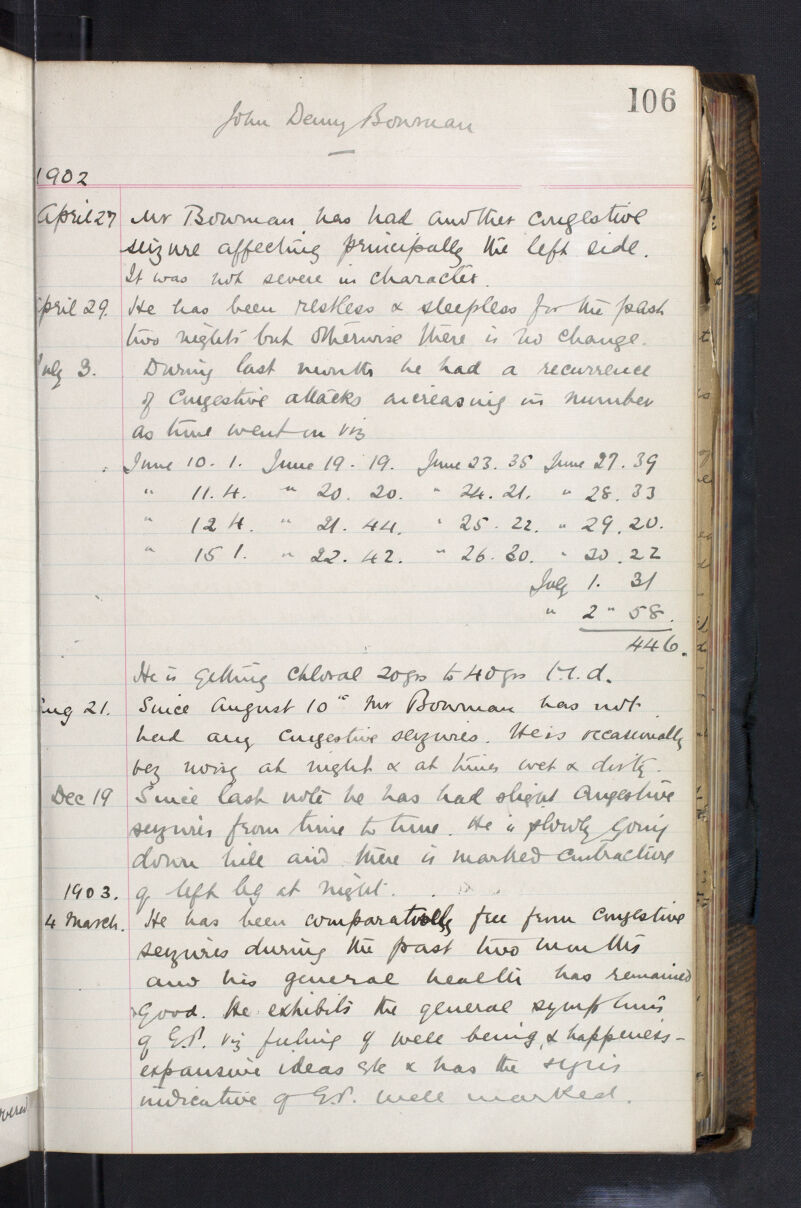 106
John Denny Bowman
1902
April 27 Mr Bowman has had another congestive
seizure affecting principally the left side.
It was not severe in character.
April 29. He has been restless & sleepless for the past
two nights but otherwise there is no change.
July 3. During last month he had a recurrence
of congestive attacks increasing in number
as time went on viz
June 10. 1. June 19. 19. June 23. 35 June 27. 39
" 11. 4. " 20. 20. " 24. 21. " 28. 33
" 12 4. " 21. 44. " 25. 22. " 29. 20.
" 15 1. " 22. 42. " 26. 30. " 30. 22
July 1. 31
" 2 " 58.
446.
He is getting chloral 20grs to 40grs t.d.
Aug 21. Since August 10th Mr Bowman has not
had any congestive seizures. He is occasionally
very noisy at night & at times wet & dirty.
Dec 19 Since last note he has had slight congestive
seizures from time to time. He is slowly going
down hill and there is marked contracture
of left leg at night.
1903.
4 March. He has been comparatively free from congestive
seizures during the past two months
and his general health has remained
good. He exhibits the general symptoms
of G.P. viz feeling of well being, & happiness-
expansive ideas etc & has the signs
indicative of G.P. well marked.